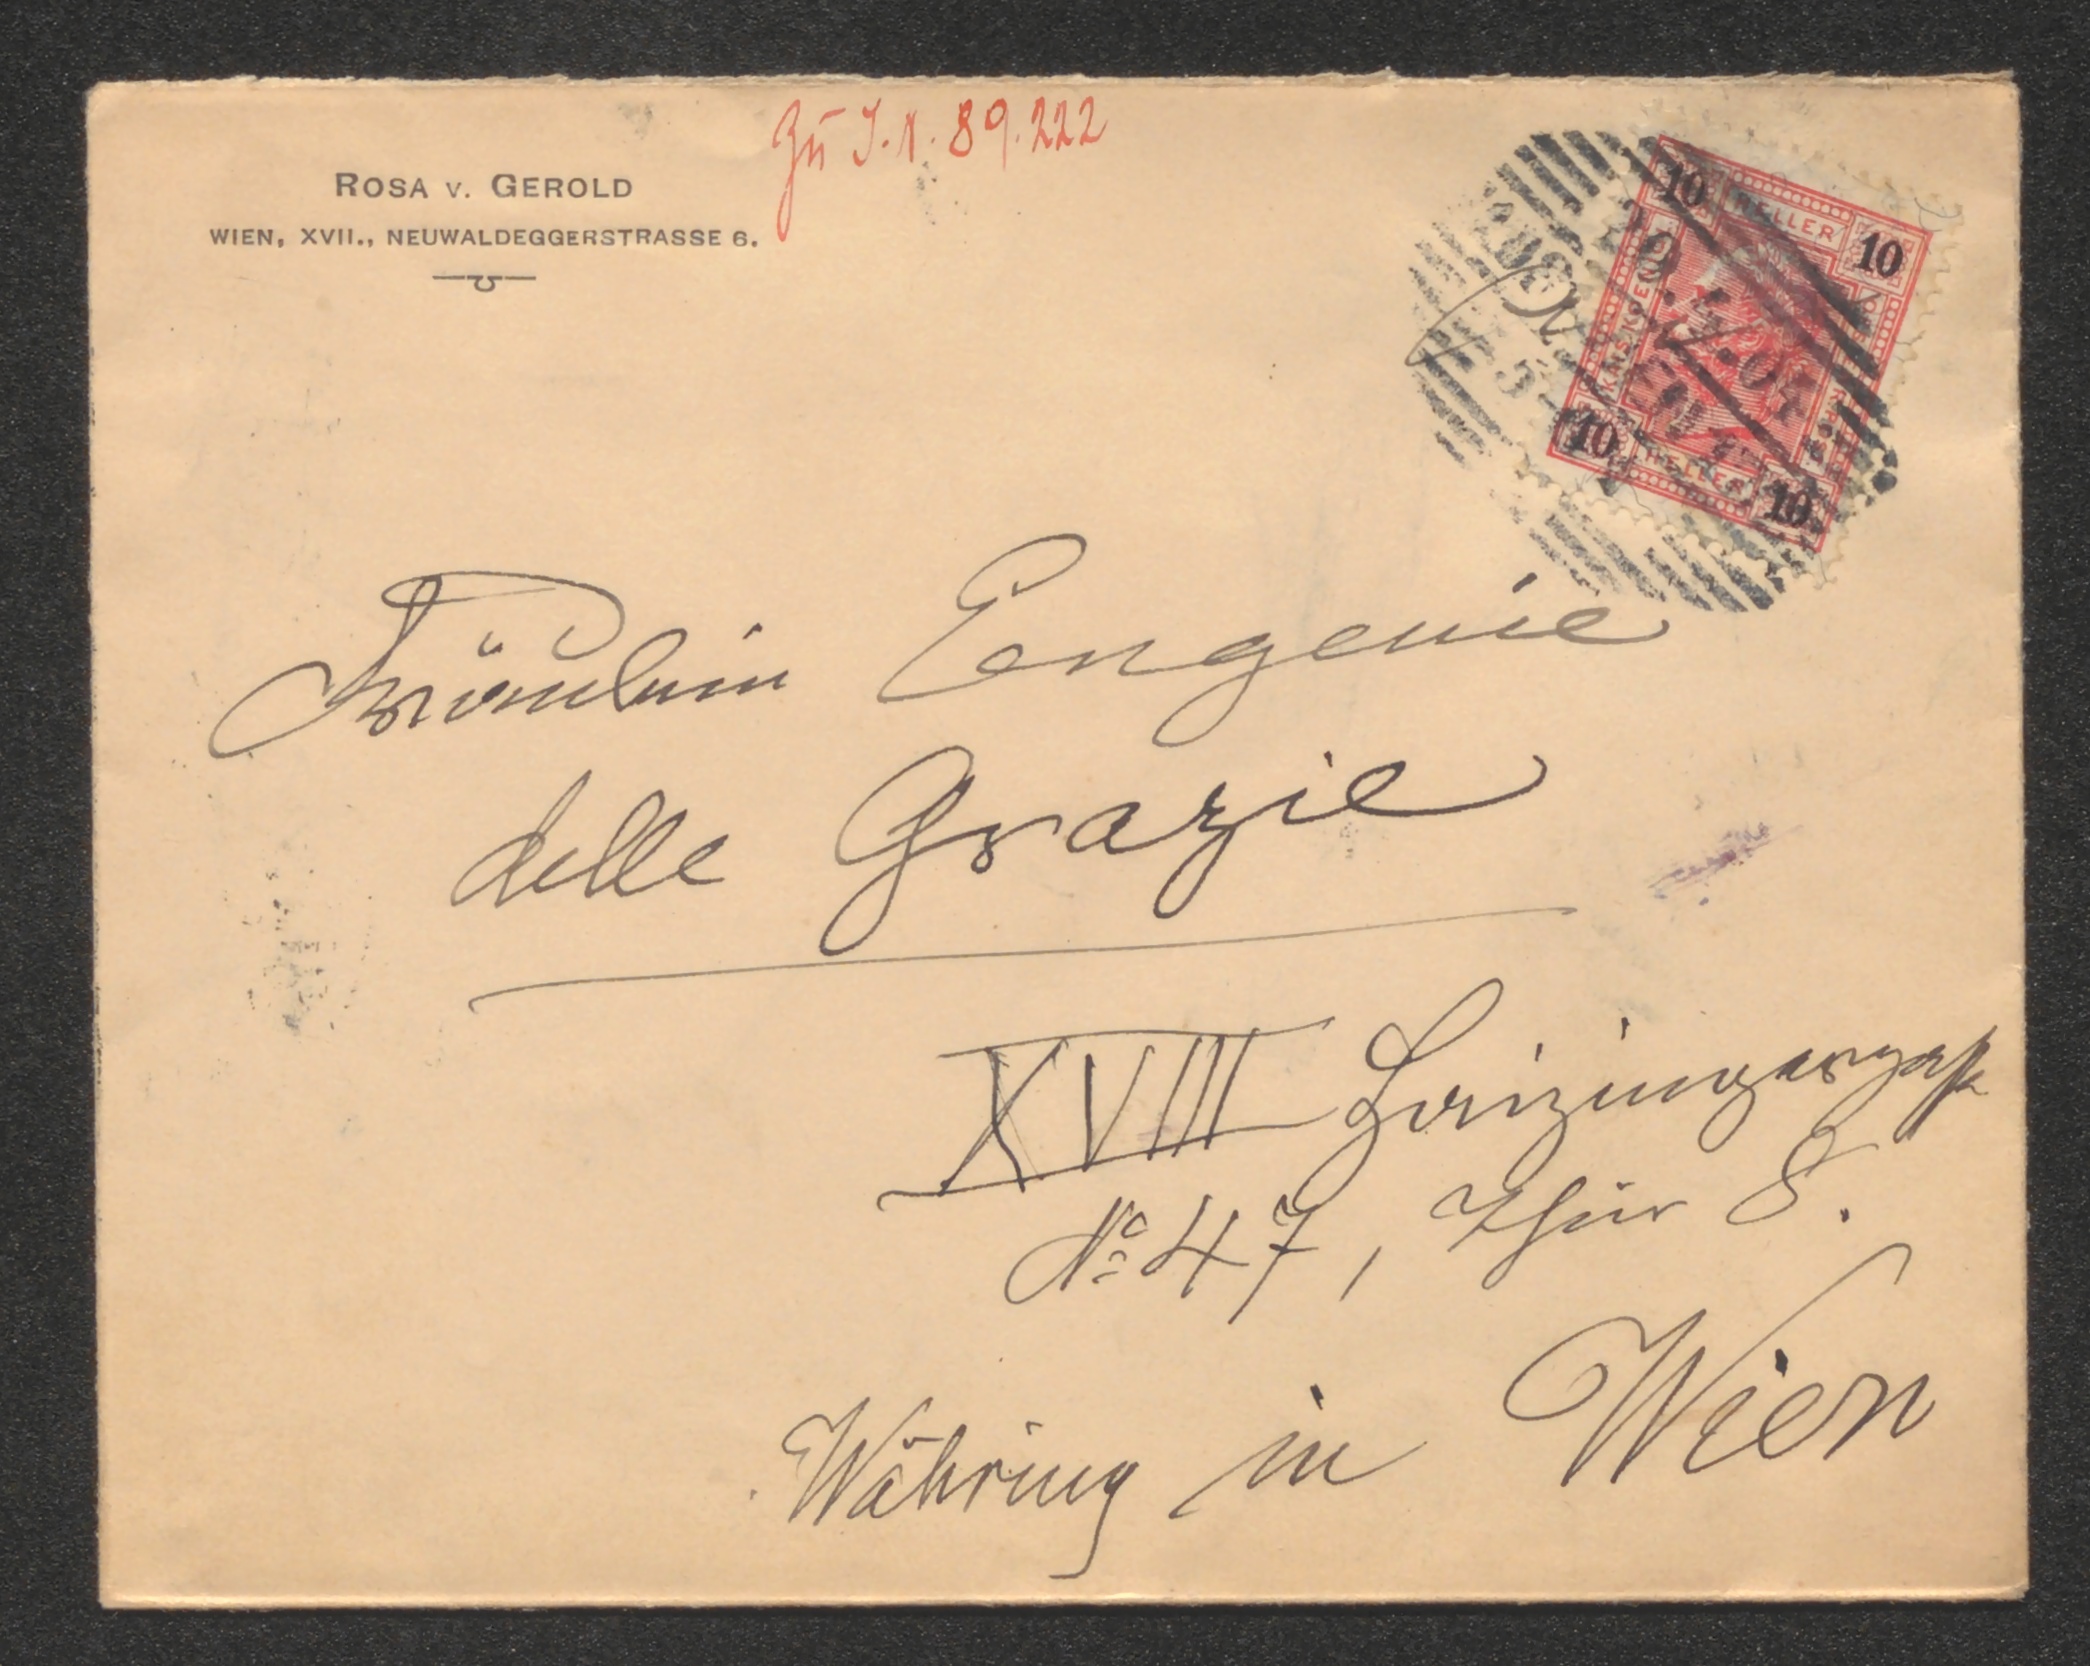 Zu I.N. 89.222
ROSA V. GEROLD
WIEN, XVII., NEUWALDEGGERSTRASSE 6.
10 HELLER 10
10 HELLER 10
Fräulein Eugenie
delle Grazie
XVIII
No 47, Thür 8.
Währing in Wien